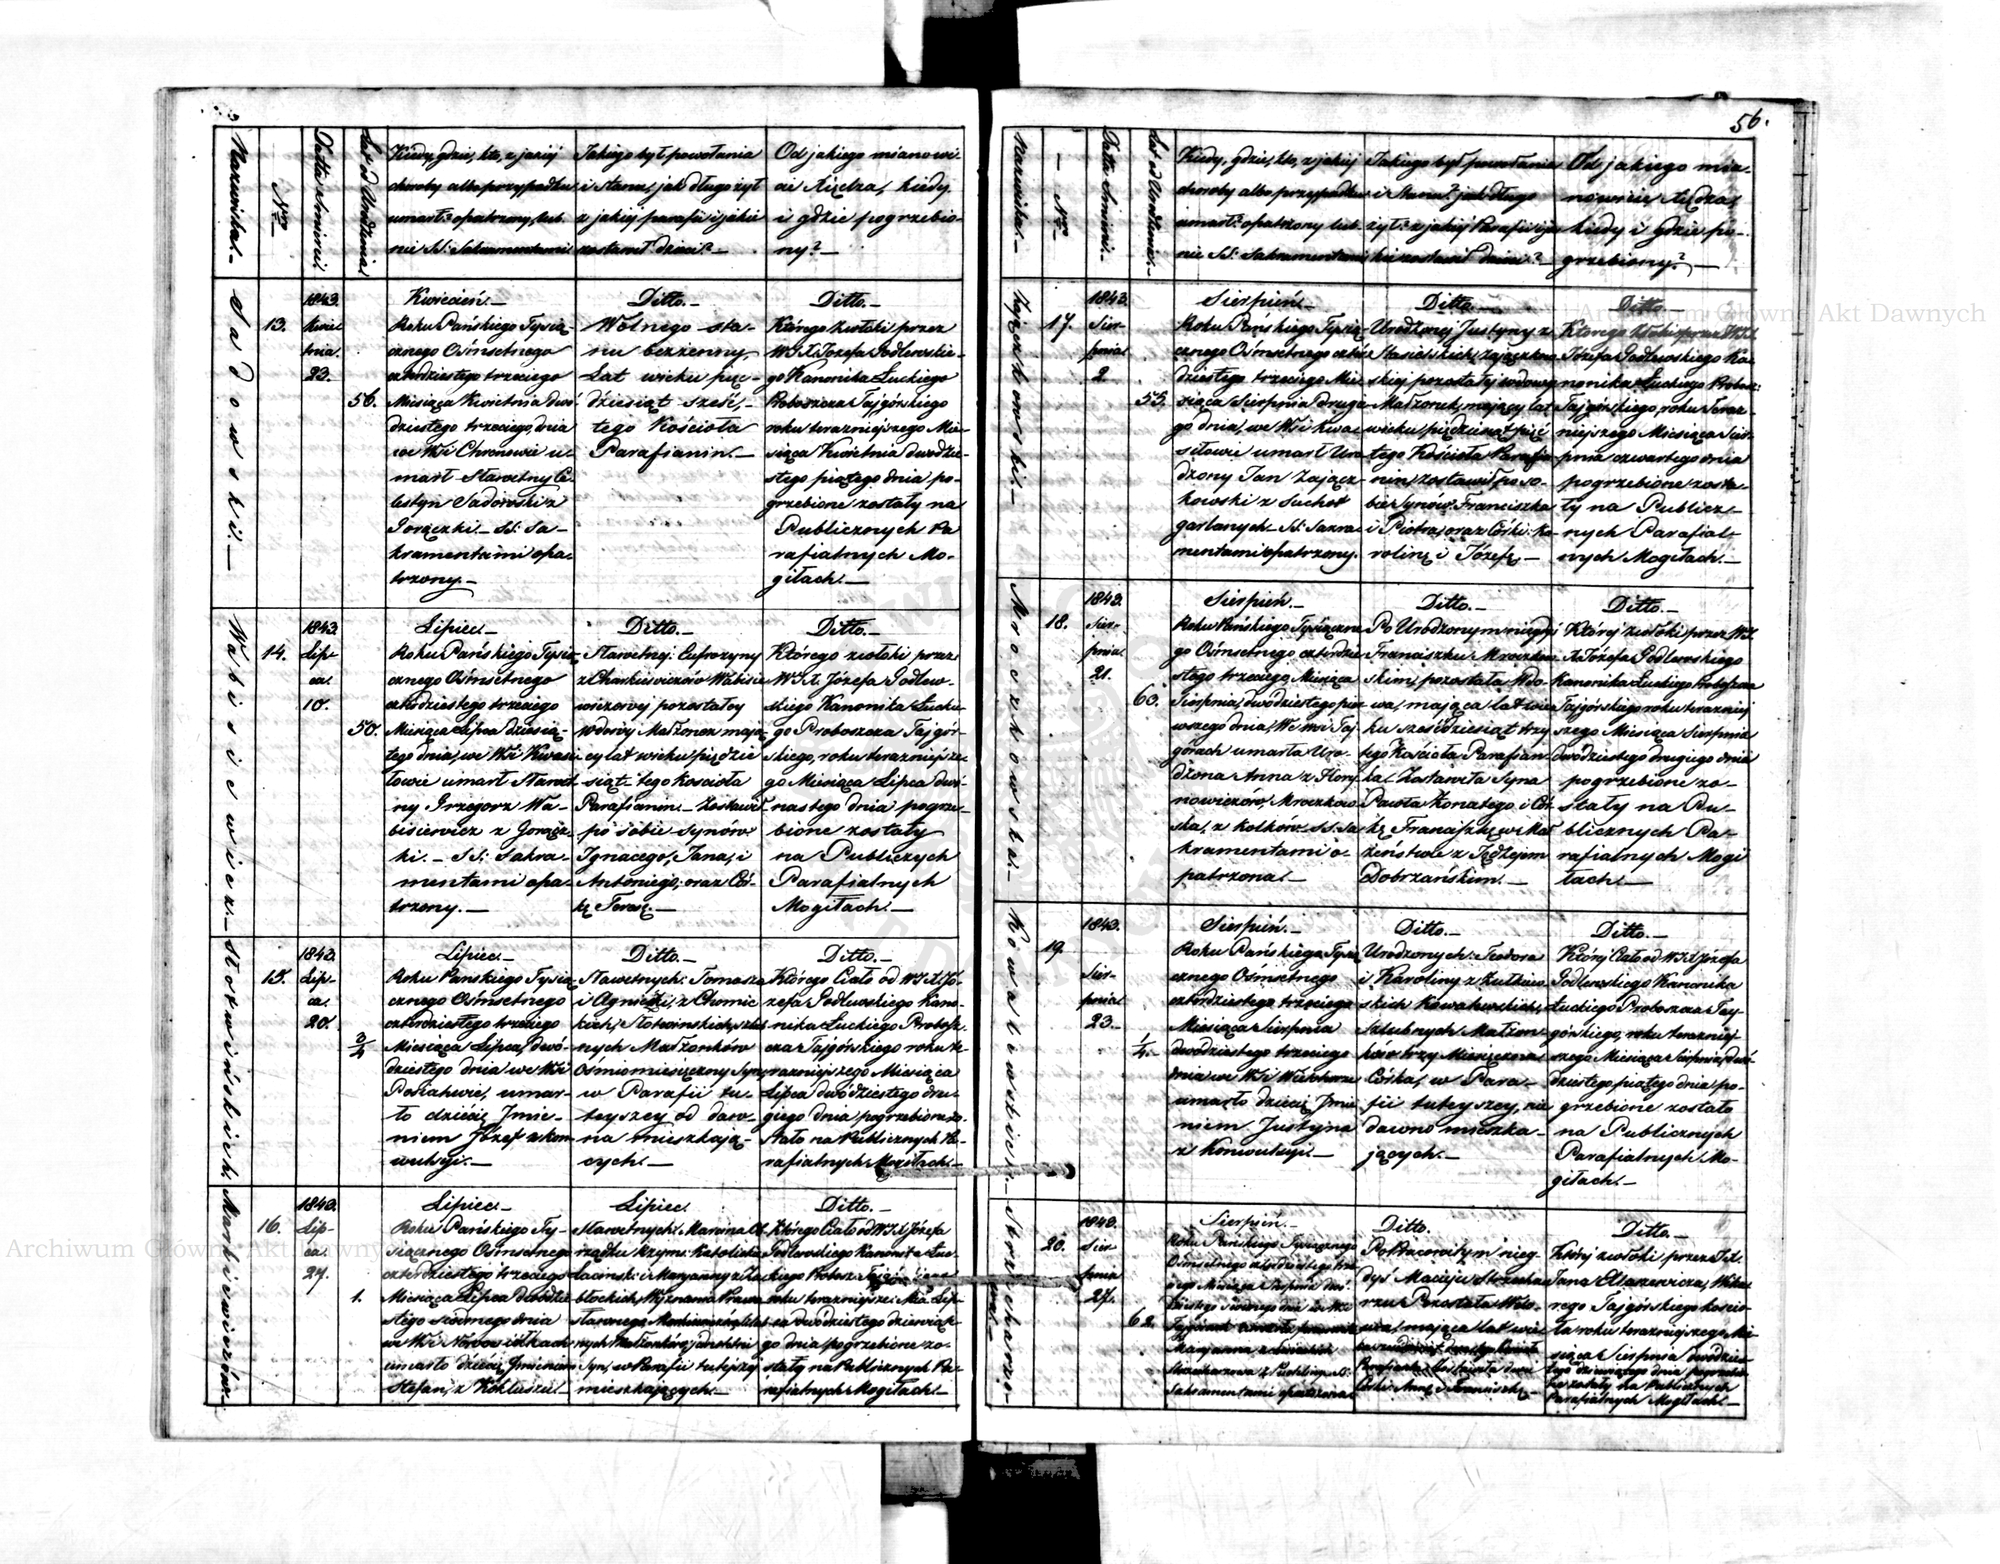 56.
Nazwiska.
Nro
Datta Śmierci.
Lat od Urodzenia
Kiedy, gdzie, kto, z jakiej
choroby albo przypadku
umarł? opatrzony, lub
nie SS: Sakramentami
Jakiego był powołania
i stanu, jak długo żył
z jakiej parafii i jakie
zostawił dzieci?
Od jakiego mianowi-
cie Xiędza, kiedy
i gdzie pogrzebio-
ny?
Sadowski.
13.
1843.
Kwie
tnia
23.
56.
Kwiecień.
Roku Pańskiego Tysią
cznego Ośmsetnego
czterdziestego trzeciego
Miesiąca Kwietnia dwó
dziestego trzeciego, dnia
we Wsi Chronowie u-
marł Sławetny Ce-
lestyn Sadowski z
Gorączki. SS: Sa-
kramentami opa-
trzony.
Ditto.
Wolnego sta-
nu bezżenny,
Lat wieku pięć-
dziesiąt sześć,
tego Kościoła
Parafianin.
Ditto.
Którego zwłoki przez
WJX. Józefa Podlewskie-
go Kanonika Łuckiego
Proboszcza Tajgórskiego
roku terazniejszego Mie-
siąca Kwietnia dwodzie-
stego piątego dnia po-
grzebione zostały na
Publicznych Pa
rafialnych Mo-
giłach.
Wabisiewicz.
14.
1843.
Lip-
ca.
10.
50.
Lipiec.
Roku Pańskiego Tysią
cznego Ośmsetnego
czterdziestego trzeciego
Miesiąca Lipca dziesią-
tego dnia, we Wsi Kwasi
łowie umarł Sławet
ny Grzegorz Wa-
bisiewicz z Gorącz-
ki. SS: Sakra-
mentami opa-
trzony.
Ditto.
Sławetnej: Eufrozyny
z Charkiewiczów Wabisie
wiczowej pozostały
wdowy Małżonek mają
cy lat wieku pięćdzie
siąt tego Kościoła
Parafianin. Zostawił
po sobie Synów
Ignacego, Jana, i
Antoniego, oraz Cór-
kę Teresę.
Ditto.
Którego zwłoki przez
WJX. Józefa Podlew-
skiego Kanonika Łucki-
go Proboszcza Tajgór-
skiego, roku teraznieysze-
go Miesiąca Lipca dwu-
nastego dnia pogrze-
bione zostały
na Publicznych
Parafialnych
Mogiłach.
Słotwińskich
15.
1843.
Lip-
ca.
20.
3/4
Lipiec.
Roku Pańskiego Tysią-
cznego Ośmsetnego
czterdziestego trzeciego
Miesiąca Lipca, dwó-
dziestego dnia we Wsi
umar-
ło dziecię Imie-
niem Józef z kon
wulsyi.
Ditto.
Sławetnych: Tomasza
i Agnieszki, z Chomic
kich, Słotwińskich, szlub
nych Małżonków
Ośmiomiesięczny Syn,
w Parafii tu-
teyszey od daw-
na mieszkają-
cych.
Ditto.
Którego Ciało od WJX Jó-
zefa Podlewskiego Kano-
nika Łuckiego Probosz-
cza Tajgórskiego roku te-
razniejszego Miesiąca
Lipca dwódziestego dru-
giego dnia pogrzebione zo-
stało na Publicznych Pa-
rafialnych Mogiłach.
Markiewiczów.
16.
1843.
Lip-
ca.
27.
1.
Lipiec.
Roku Pańskiego Ty-
siącznego Ośmsetnego
czterdziestego trzeciego
Miesiąca Lipca dwodzie
stego siódmego dnia
umarło dziecię Imieniem
Stefan, z Kokluszu.
Lipiec.
Sławetnych: Marcina Ob-
rządku Rzyms: Katolicko
Łacinski: i Maryanny z
Syn, w Parafii tutejszej
mieszkających.
Ditto.
Którego Ciało od WJX Józefa
Podlewskiego Kanonika Łuc-
kiego
roku terazniejszego Mca Lip-
ca dwodziestego dziewiąte-
go dnia pogrzebione zo-
stały na Publicznych Pa-
rafialnych Mogiłach.
Nazwiska.
Nro
Datta Śmierci.
Lat od Urodzenia.
Kiedy, gdzie, kto, z jakiej
choroby albo przypadku
umarł? opatrzony lub
nie SS: Sakramentami
Jakiego był powołania
i Stanu? jak długo
żył? z jakiej Parafii i ja
kie zostawił dzieci?
Od jakiego mia-
nowicie Xiędza,
kiedy i gdzie po-
grzebiony?
Zajączkowski.
17.
1843.
Sier-
pnia
2
55.
Sierpień.
Roku Pańskiego Tysią-
cznego Ośmsetnego czter
dziestego trzeciego Mie-
siąca Sierpnia Drugie-
go dnia, we Wsi Kwa-
siłowie umarł Uro-
dzony Jan Zającz-
kowski z Suchot
garlanych SS: Sakra-
mentami opatrzony.
Ditto.
Urodzonej Justyny z
skiej pozostały wdowy
Małżonek, mający lat
wieku pięćdziesiąt pięć
tego Kościoła Parafia
nin, zostawił po so-
bie Synów: Franciszka
i Piotra, oraz Córki: Ka-
rolinę i Józefę.
Ditto.
Którego zwłoki przez WJX.
Józefa Podlewskiego Ka-
nonika Łuckiego Probosz:
Tajgórskiego, roku Teraz-
niejszego Miesiąca Sier-
pnia czwartego dnia
pogrzebione zosta-
ły na Publicz-
nych Parafial-
nych Mogiłach.
Mroczkowska.
18.
1843.
Sier-
pnia
21.
63.
Sierpień.
Roku Pańskiego Tysiączne
go Ośmsetnego czterdzie
stego trzeciego, Miesiąca
Sierpnia, dwódziestego pier
wszego dnia, We Wsi Taj-
gorach umarła Uro-
dzona Anna z
Mroczkow
ska, z Kołków. SS: Sa
kramentami o-
patrzona.
Ditto.
Po Urodzonym niegdyś
Franciszku Mroczkow
skim, pozostała Wdo-
wa, mająca lat wie
ku sześćdziesiąt trzy
tego Kościoła Parafian-
ka. Zostawiła Syna
Pawła Żonatego, i Cór
kę Franciszkę w Mał
żeństwie z Jędrzejem
Dobrzańskim.
Ditto.
Której zwłoki przez WJ.
X. Józefa Podlewskiego
Kanonika Łuckiego Proboszcza
Tajgórskiego roku terazniej
szego Miesiąca Sierpnia
dwódziestego drugiego dnia
pogrzebione zo-
stały na Pu-
blicznych Pa-
rafialnych Mogi
łach.
Kowalewskich.
19.
1843.
Sier-
pnia
23.
1/4.
Sierpień.
Roku Pańskiego Tysią
cznego Ośmsetnego
czterdziestego trzeciego
Miesiąca Sierpnia
dwódziestego trzeciego
dnia we Wsi
umarło dziecię Imie
niem Justyna
z Konwulsyi.
Ditto.
Urodzonych: Teodora
i Karoliny z
skich Kowalewskich,
Szlubnych Małżon-
ków trzy Miesięczna
Córka, w Para-
fii tuteyszey, nie
dawno mieszka-
jących.
Ditto.
Której Ciało od WJX Józefa
Podlewskiego Kanonika
Łuckiego Proboszcza Taj-
górskiego, roku terazniej-
szego Miesiąca Sierpnia, dwó-
dziestego, piątego dnia po-
grzebione zostało
na Publicznych
Parafialnych Mo-
giłach.
20.
1843.
Sier-
pnia
27.
62.
Sierpień.
Roku Pańskiego Tysiącznego
Ośmsetnego czterdziestego trze
ciego Miesiąca Sierpnia dwó
dziestego siódmego dnia we Wsi
Maryanna
Sakramentami opatrzona
Ditto.
Po Pracowitym nieg-
dyś Macieju
Pozostała Wdo-
wa, mająca lat wie
Córki Annę i Franciszkę.
Ditto.
Której zwłoki przez JX.
Jana
Tajgórskiego kościo-
ła roku terazniejszego Mie
siąca Sierpnia dwodzie-
stego dziewiątego dnia pogrzebio
ne zostały na Publicznych
Parafialnych Mogiłach.
Archiwum Główne Akt Dawnych
Archiwum Główne Akt Dawnych